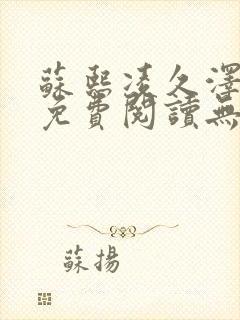 蘇熙凌久澤
免費閱讀無
蘇揚